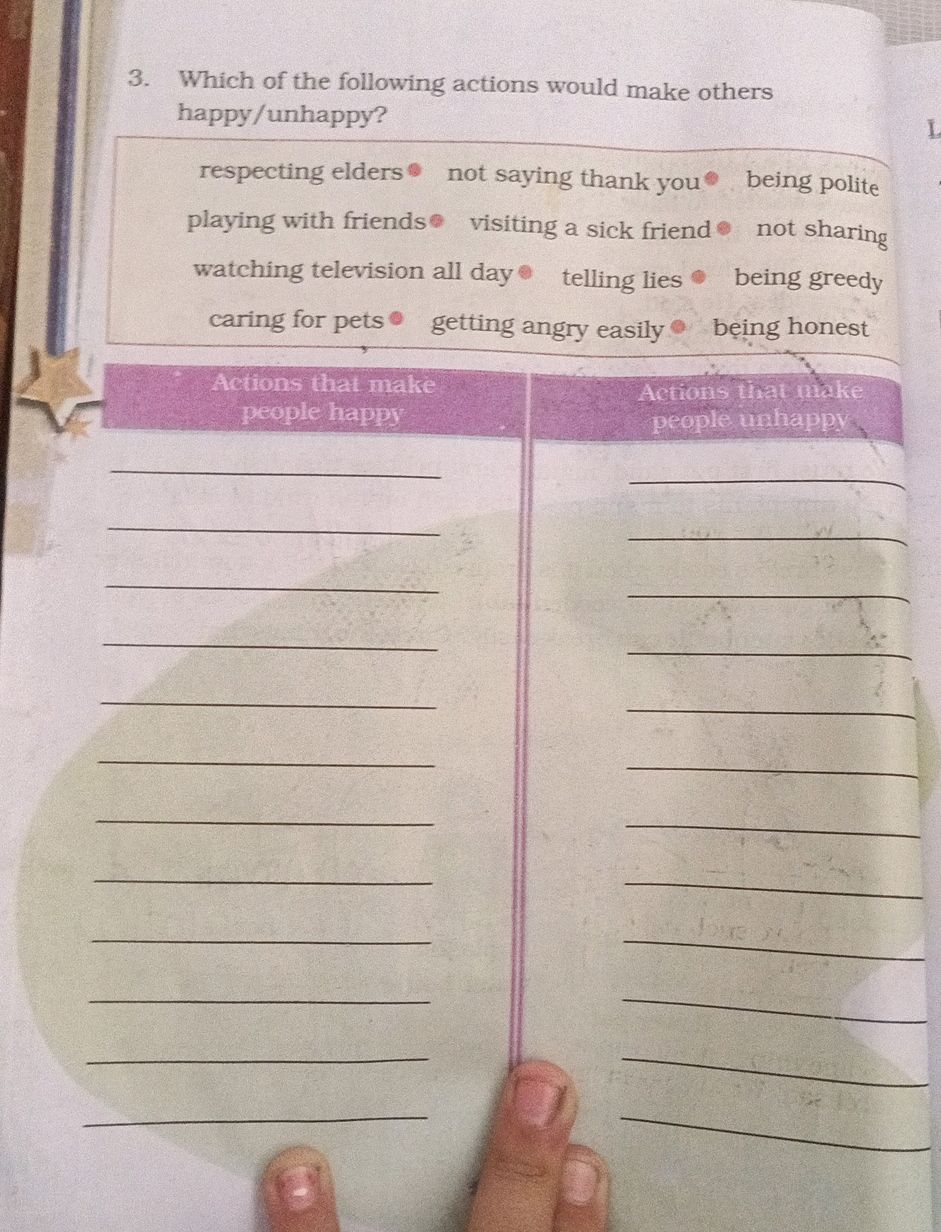 3. Which of the following actions would make others
happy/unhappy?
respecting elders • not saying thank you • being polite
playing with friends • visiting a sick friend • not sharing
watching television all day • telling lies • being greedy
caring for pets • getting angry easily • being honest
Actions that make
people happy
Actions that make
people unhappy